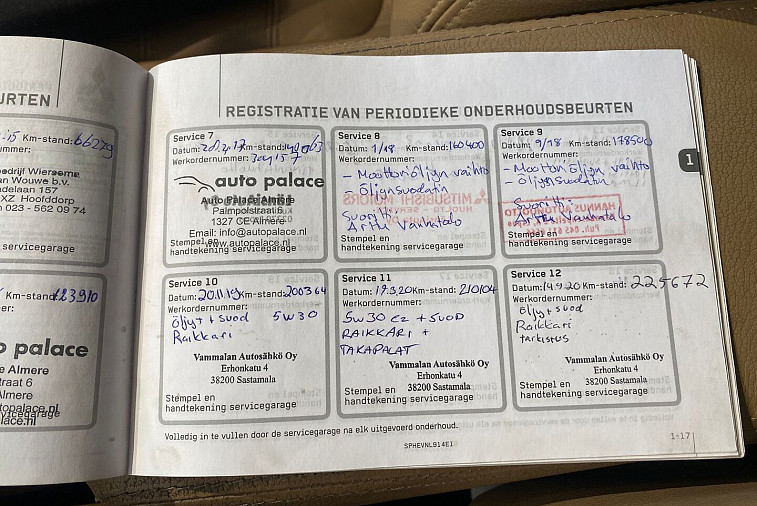 URTEN
Km-stand: 66229
mmer:
edrijf Wiersema
an Wouwe b.v.
ndelaan 157
XZ Hoofddorp
023 - 562 09 74
servicegarage
Km-stand: 123910
mmer:
o palace
e Almere
traat 6
Almere
topalace.nl
lace.nl
REGISTRATIE VAN PERIODIEKE ONDERHOUDSBEURTEN
Service 7
Datum: Km-stand:
Werkordernummer:
auto palace
Auto Palace Almere
Palmpolstraat 5
1327 CE Almere
Email: info@autopalace.nl
www.autopalace.nl
Stempel en
handtekening servicegarage
Service 8
Datum: 1/18 Km-stand: 160400
Werkordernummer:
- Moottoriöljyn vaihto
- Öljynsuodatin
Suoritti:
Arttu Vanhatalo
Stempel en
handtekening servicegarage
Service 9
Datum: 9/18 Km-stand: 178500
Werkordernummer:
- Moottoriöljyn vaihto
- Öljynsuodatin
Suoritti:
Arttu Vanhatalo
Stempel en
handtekening servicegarage
1
Service 10
Datum: 20.11.19 Km-stand: 200364
Werkordernummer:
öljyt + suod 5W30
Raikkari
Vammalan Autosähkö Oy
Erhonkatu 4
38200 Sastamala
Stempel en
handtekening servicegarage
Service 11
Datum: 17.3.20 Km-stand: 210104
Werkordernummer:
5W30 C2 + SUOD
RAIKKARI +
TAKAPALAT
Vammalan Autosähkö Oy
Erhonkatu 4
38200 Sastamala
Stempel en
handtekening servicegarage
Service 12
Datum: 14.9.20 Km-stand: 225672
Werkordernummer:
öljy + suod
Raikkari
tarkistus
Vammalan Autosähkö Oy
Erhonkatu 4
38200 Sastamala
Stempel en
handtekening servicegarage
Volledig in te vullen door de servicegarage na elk uitgevoerd onderhoud.
SPHEVNL914E1
1-17